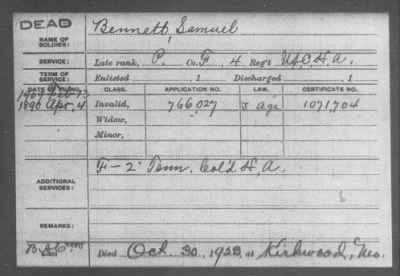 DEAD
NAME OF SOLDIER: Bennett, Samuel
SERVICE: Late rank, P. Co. F, 4 Reg't U.S.C.H.A.
TERM OF SERVICE: Enlisted , 1 Discharged , 1
DATE OF FILING. CLASS. APPLICATION NO. LAW. CERTIFICATE NO.
1890 Apr, 4 Invalid, 766,027 J age 1,071,704
Widow,
Minor,
ADDITIONAL SERVICES: F - 2" Tenn. Col'd H.A.
REMARKS:
Died Oct. 30, 1928, at Kirkwood, Mo.